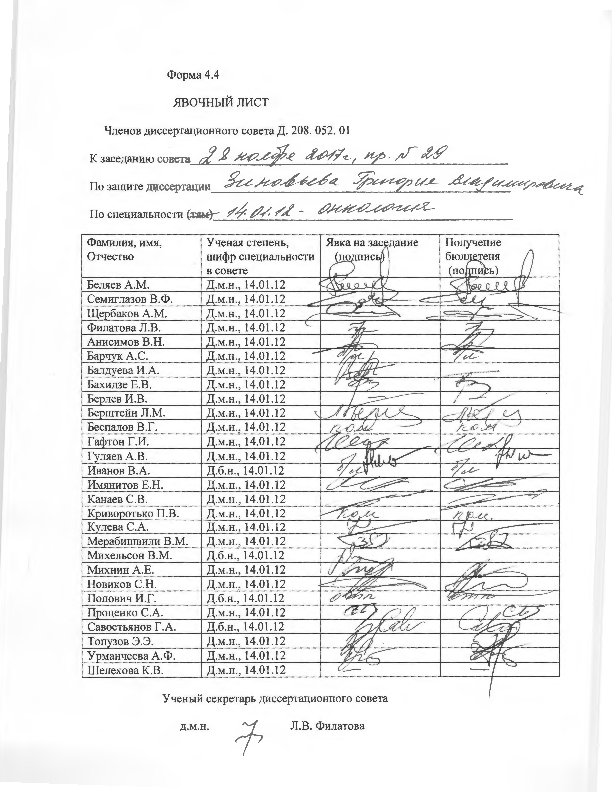 Форма 4.4
ЯВОЧНЫЙ ЛИСТ
Членов диссертационного совета Д. 208. 052. 01
К заседанию совета 28 ноября 2017 г., пр. № 29
По защите диссертации Зиновьева Григория Владимировича
По специальности (там) 14.01.12 - онкология
Фамилия, имя, Отчество Ученая степень, шифр специальности в совете Явка на заседание (подпись) Получение бюллетеня (подпись)
Беляев А.М. Д.м.н., 14.01.12
Семиглазов В.Ф. Д.м.н., 14.01.12
Щербаков А.М. Д.м.н., 14.01.12
Филатова Л.В. Д.м.н., 14.01.12
Анисимов В.Н. Д.м.н., 14.01.12
Барчук А.С. Д.м.н., 14.01.12
Балдуева И.А. Д.м.н., 14.01.12
Бахидзе Е.В. Д.м.н., 14.01.12
Берлев И.В. Д.м.н., 14.01.12
Берштейн Л.М. Д.м.н., 14.01.12
Беспалов В.Г. Д.м.н., 14.01.12 ком ком
Гафтон Г.И. Д.м.н., 14.01.12
Гуляев А.В. Д.м.н., 14.01.12
Иванов В.А. Д.б.н., 14.01.12
Имянитов Е.Н. Д.м.н., 14.01.12
Канаев С.В. Д.м.н., 14.01.12
Криворотько П.В. Д.м.н., 14.01.12 ком ком.
Кулева С.А. Д.м.н., 14.01.12
Мерабишвили В.М. Д.м.н., 14.01.12
Михельсон В.М. Д.б.н., 14.01.12
Михнин А.Е. Д.м.н., 14.01.12
Новиков С.Н. Д.м.н., 14.01.12
Попович И.Г. Д.б.н., 14.01.12
Проценко С.А. Д.м.н., 14.01.12
Савостьянов Г.А. Д.б.н., 14.01.12
Топузов Э.Э. Д.м.н., 14.01.12
Урманчеева А.Ф. Д.м.н., 14.01.12
Шелехова К.В. Д.м.н., 14.01.12
Ученый секретарь диссертационного совета
д.м.н. Л.В. Филатова